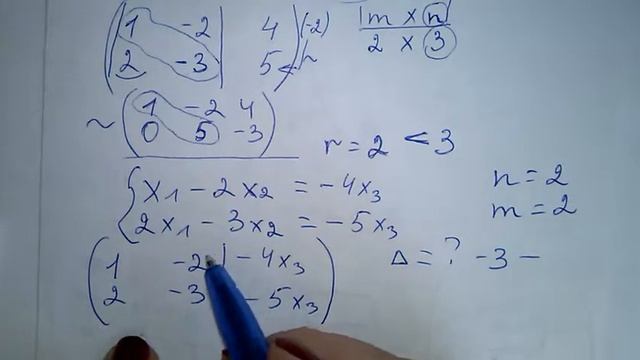 ( 1 -2 | 4 ) (-2)
( 2 -3 | 5 )
m x n
2 x 3
~ ( 1 -2 4 )
( 0 5 -3 )
r = 2 < 3
{ x₁ - 2x₂ = -4x₃
2x₁ - 3x₂ = -5x₃
n = 2
m = 2
( 1 -2 | -4x₃ )
( 2 -3 -5x₃ )
Δ = ? -3 -